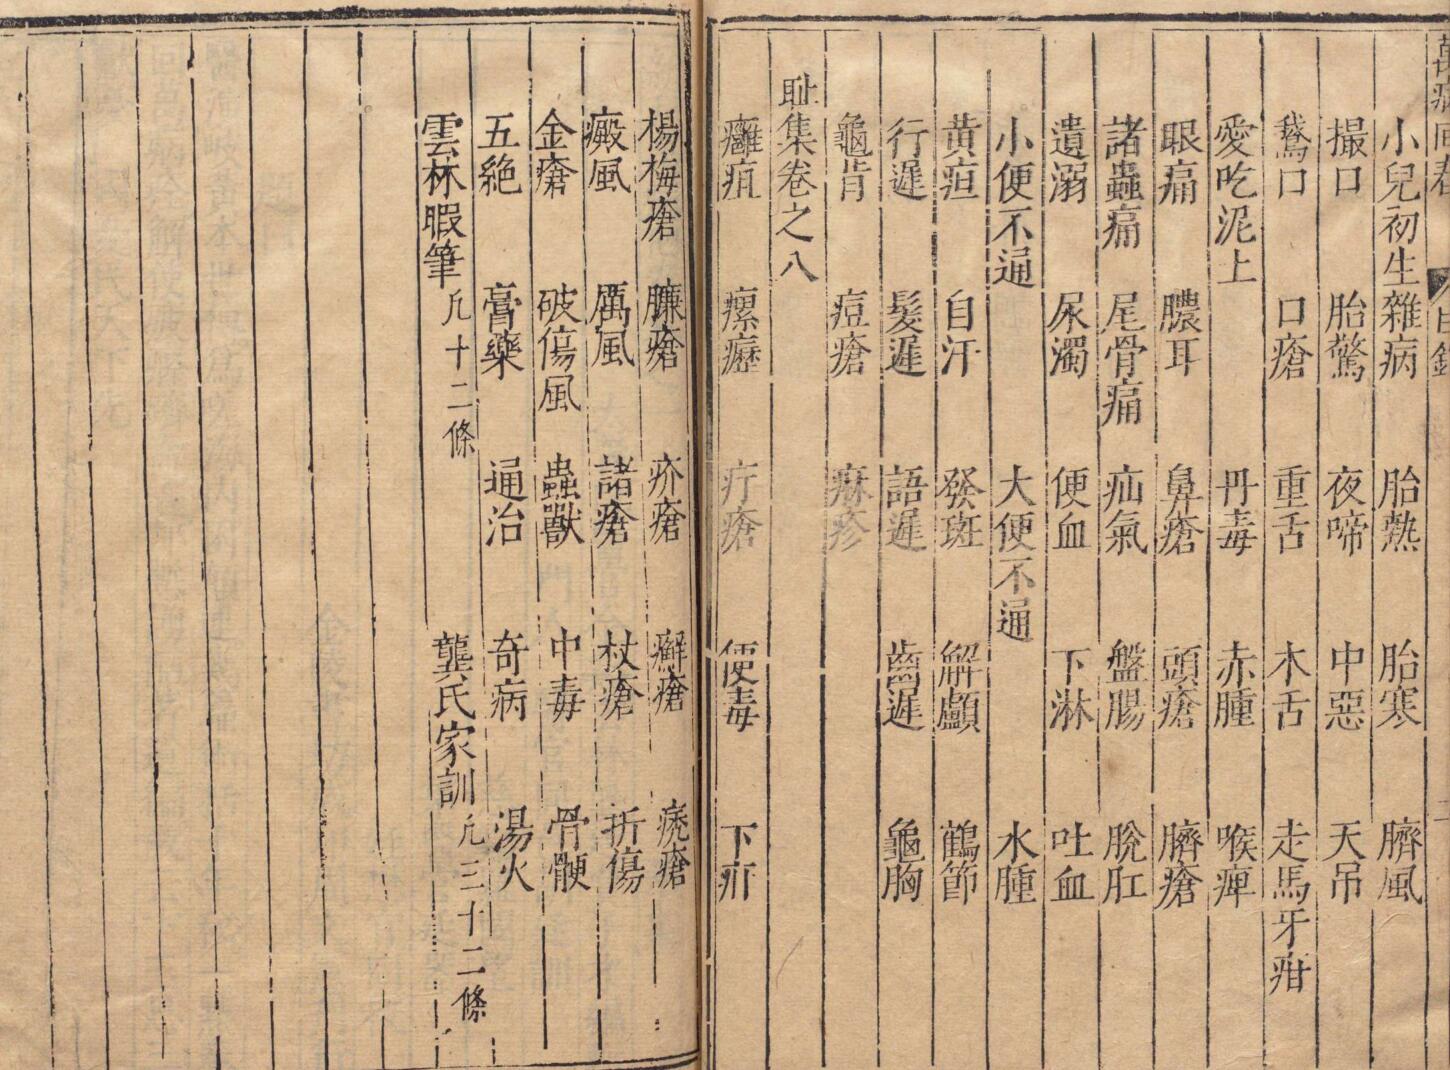 萬病回春 目錄
小兒初生雜病 胎熱 胎寒 臍風
撮口 胎驚 夜啼 中惡 天吊
鵞口 口瘡 重舌 木舌 走馬牙疳
愛吃泥土 丹毒 赤腫 喉痺
眼痛 膿耳 鼻瘡 頭瘡 臍瘡
諸蟲痛 尾骨痛 疝氣 盤腸 脫肛
遺溺 尿濁 便血 下淋 吐血
小便不通 大便不通 水腫
黄疸 自汗 發斑 解顱 鶴節
行遲 髮遲 語遲 齒遲 龜胸
龜背 痘瘡 麻疹
耻集卷之八
癰疽 瘰癧 疔瘡 便毒 下疳
楊梅瘡 臁瘡 疥瘡 癬瘡 禿瘡
癜風 厲風 諸瘡 杖瘡 折傷
金瘡 破傷風 蟲獸 中毒 骨骾
五絕 膏藥 通治 奇病 湯火
雲林暇筆 凢十二條 龔氏家訓 凢三十二條